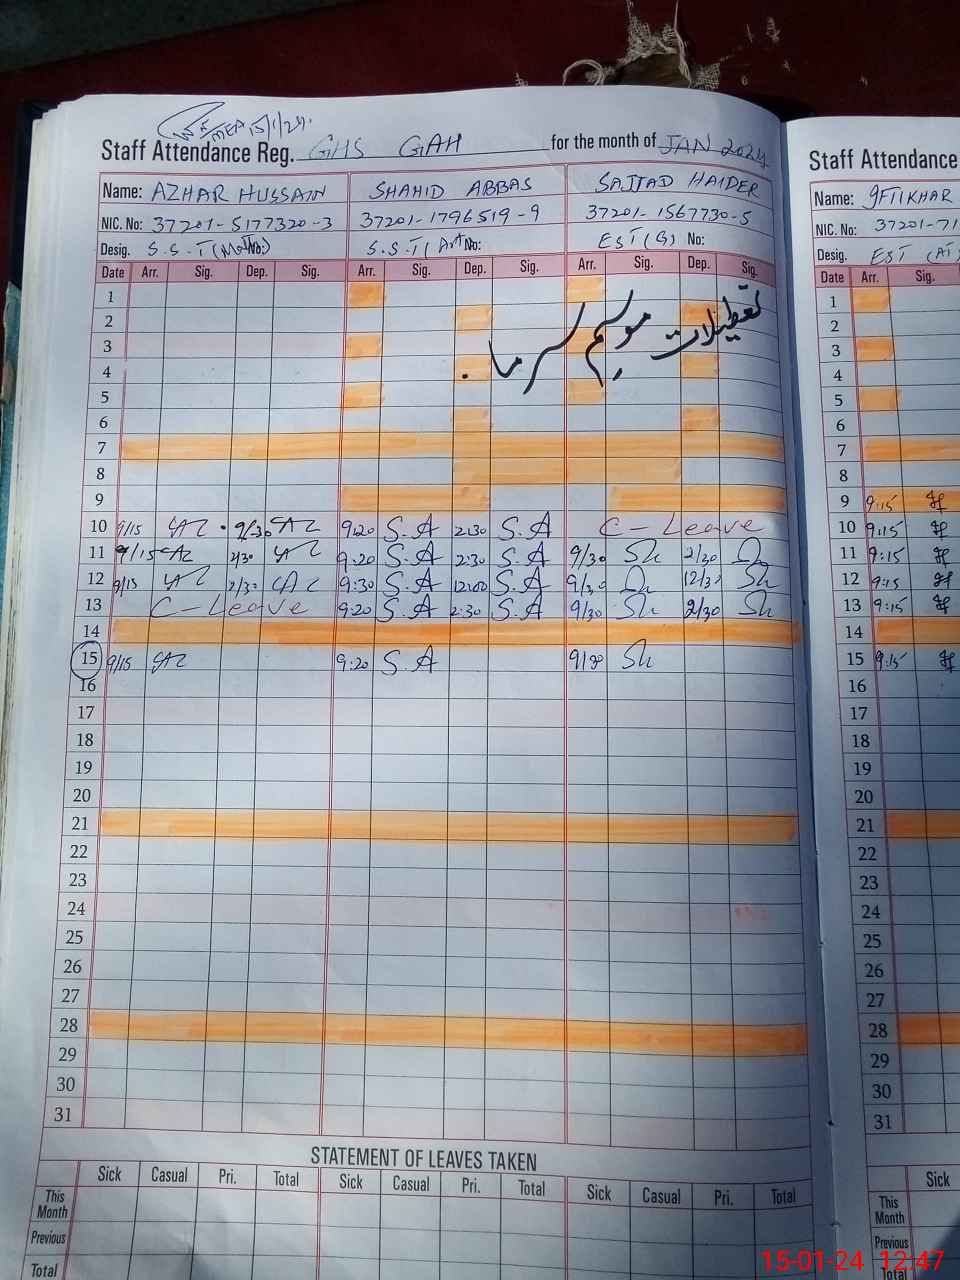 MEA 15/1/24.
Staff Attendance Reg. GHS GAH for the month of JAN 2024
Name: AZHAR HUSSAIN SHAHID ABBAS SAJJAD HAIDER
NIC. No: 37201-5177320-3 37201-1796519-9 37201-1567730-5
Desig. S.S.T (Math) No: S.S.T (Art No: EST (S) No:
Date Arr. Sig. Dep. Sig. Arr. Sig. Dep. Sig. Arr. Sig. Dep. Sig.
1
2
تعطیلات موسم سرما.
3
4
5
6
7
8
9
10 9/15 9/30 9:20 S.A 2:30 S.A C-Leave
11 9/15 2/30 9:20 S.A 2:30 S.A 9/30 2/30
12 9/15 9:30 S.A 12:00 S.A 9/30 12/30
13 C-Leave 9:20 S.A 2:30 S.A 9/30 2/30
14
15 9/15 9:20 S.A 9/30
16
17
18
19
20
21
22
23
24
25
26
27
28
29
30
31
STATEMENT OF LEAVES TAKEN
Sick Casual Pri. Total Sick Casual Pri. Total Sick Casual Pri. Total
This Month
Previous
Total
Staff Attendance
Name: IFTIKHAR
NIC. No: 37201-71
Desig. EST (AT)
Date Arr. Sig.
1
2
3
4
5
6
7
8
9 9:15
10 9:15
11 9:15
12 9:15
13 9:15
14
15 9:15
16
17
18
19
20
21
22
23
24
25
26
27
28
29
30
31
Sick
This Month
Previous
Total
15-01-24 12:47